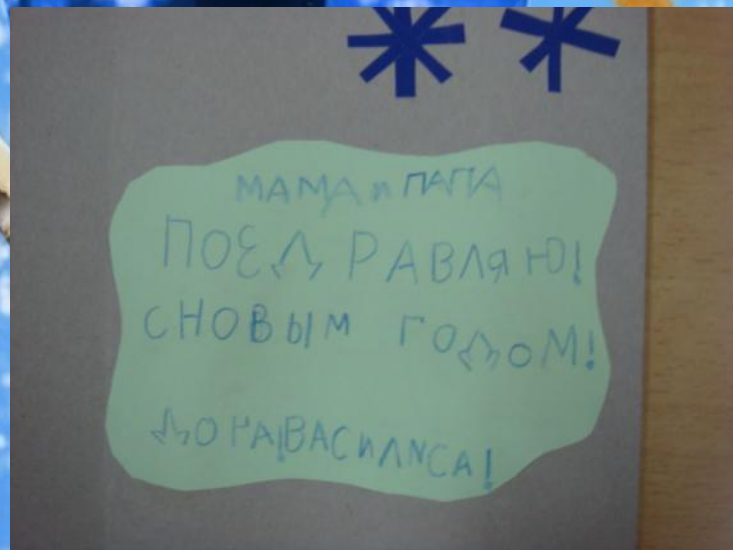 МАМА и ПАПА
ПОЕДРАВЛЯЮ!
СНОВЫМ ГОДОМ!
ДОЧА ВАСИЛИСА!